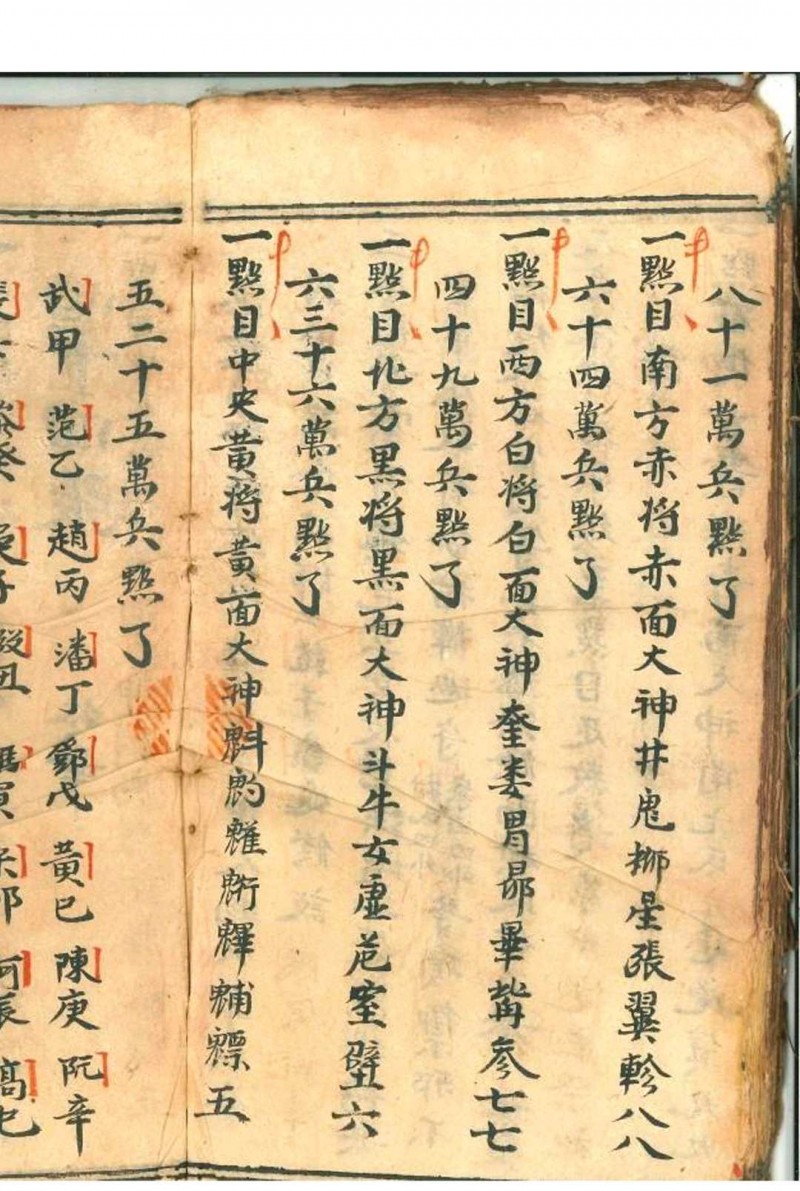 八十一萬兵點了
一點目南方赤将赤面大神井鬼柳星張翼軫八八
六十四萬兵點了
一點目西方白将白面大神奎娄胃昴畢觜参七七
四十九萬兵點了
一點目北方黑将黑面大神斗牛女虚危室壁六
六三十六萬兵點了
一點目中央黄将黄面大神魁𩲃䰢魓魓䰠魒五
五二十五萬兵點了
武甲 范乙 趙丙 潘丁 鄧戊 黄巳 陳庚 阮辛